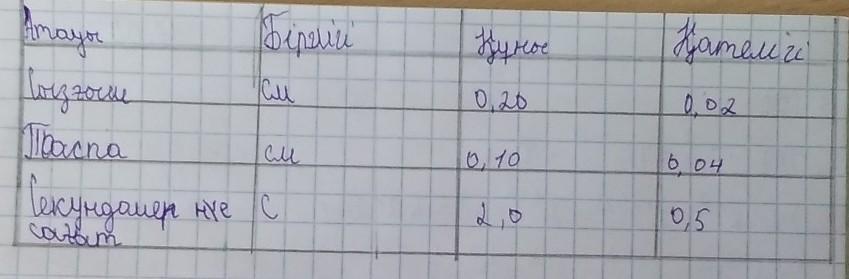 Атауы Бірлігі Құны Қателігі
Сызғыш см 0,20 0,02
Таспа см 0,10 0,04
Секундомер не с 2,0 0,5
сағат